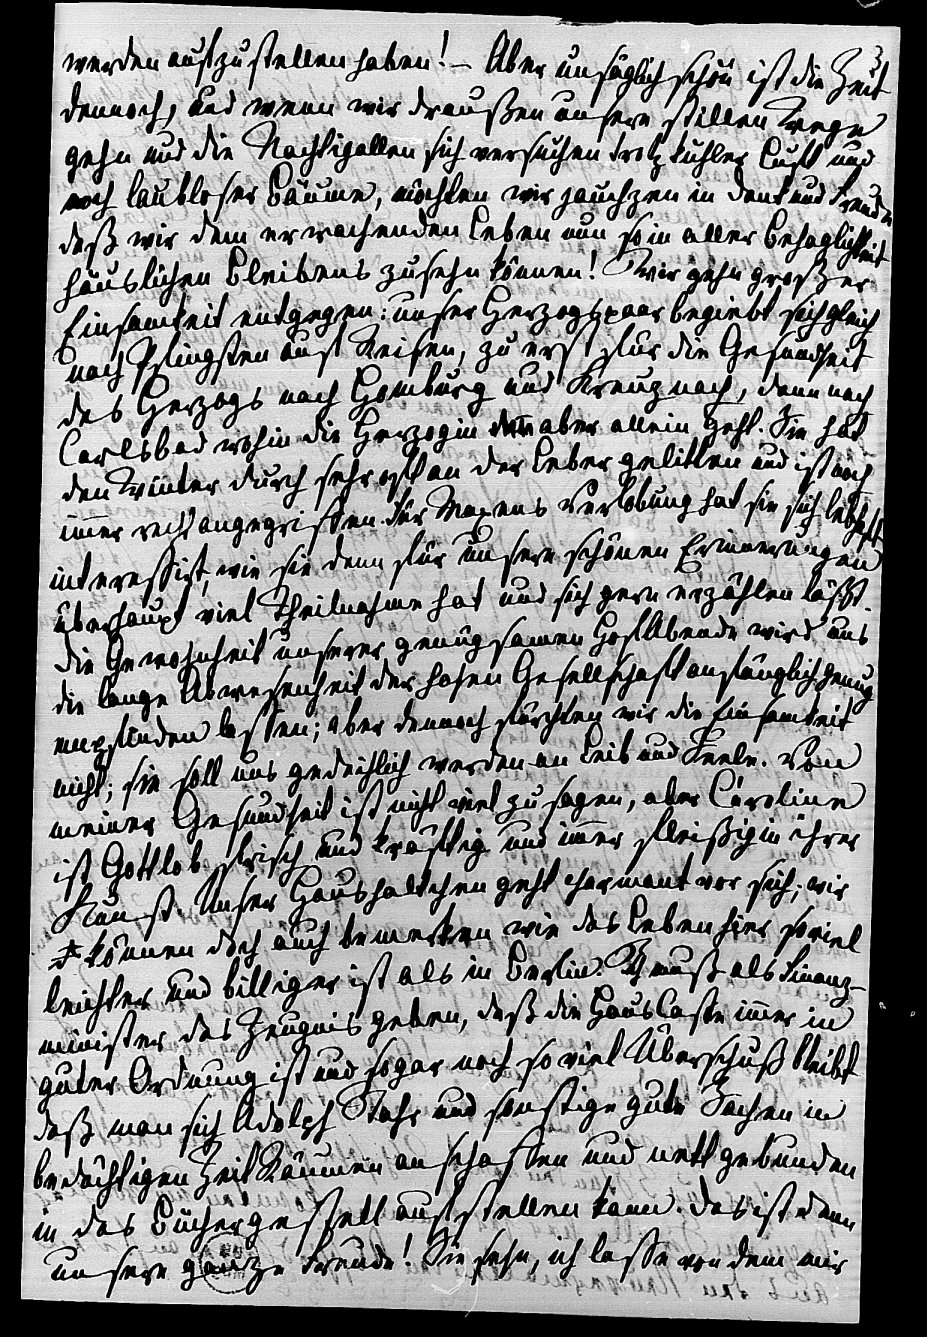 3
werden aufzustellen haben! – Aber unsäglich schön ist die Zeit
dennoch, und wenn wir draußen unsere stillen Wege
gehn und die Nachtigallen sich versuchen trotz kühler Luft und
noch laubloser Bäume, möchten wir jauchzen in Dank und Freude
daß wir dem erwachenden Leben nun so in aller Behaglichkeit
häuslichen Bleibens zusehn können! Wir gehn großer
Einsamkeit entgegen: unser Herzogspaar begiebt sich gleich
nach Pfingsten auf Reisen, zuerst für die Gesundheit
des Herzogs nach Homburg und Kreuznach, dann nach
Carlsbad wohin die Herzogin aber allein geht. Sie hat
den Winter durch sehr oft an der Leber gelitten und ist noch
immer recht angegriffen. Für Maxens Verlobung hat sie sich lebhaft
interessirt, wie sie denn für unsere schönen Erinnerungen
überhaupt viel Theilnahme hat und sich gern erzählen läßt.
Die Gewohnheit unserer genügsamen HofAbende wird uns
die lange Abwesenheit der hohen Gesellschaft anfänglich genug
empfinden lassen; aber dennoch fürchten wir die Einsamkeit
nicht; sie soll uns gedeihlich werden an Leib und Seele. Von
meiner Gesundheit ist nicht viel zu sagen, aber Caroline
ist Gottlob frisch und kräftig und immer fleißig in ihrer
Kunst. Unser Haushaltchen geht charmant vor sich; wir
können doch auch bemerken wie das Leben hier soviel
leichter und billiger ist als in Berlin. Ich muß als Finanz-
minister das Zeugnis geben, daß die HausCasse immer in
guter Ordnung ist und sogar noch so viel Überschuß bleibt
daß man sich Adolph Stahr und sonstige gute Sachen in
bedächtigen ZeitRäumen anschaffen und nett gebunden
in das Büchergestell aufstellen kann. Das ist denn
unsere ganze Freude! Sie sehn, ich lasse von dem mir